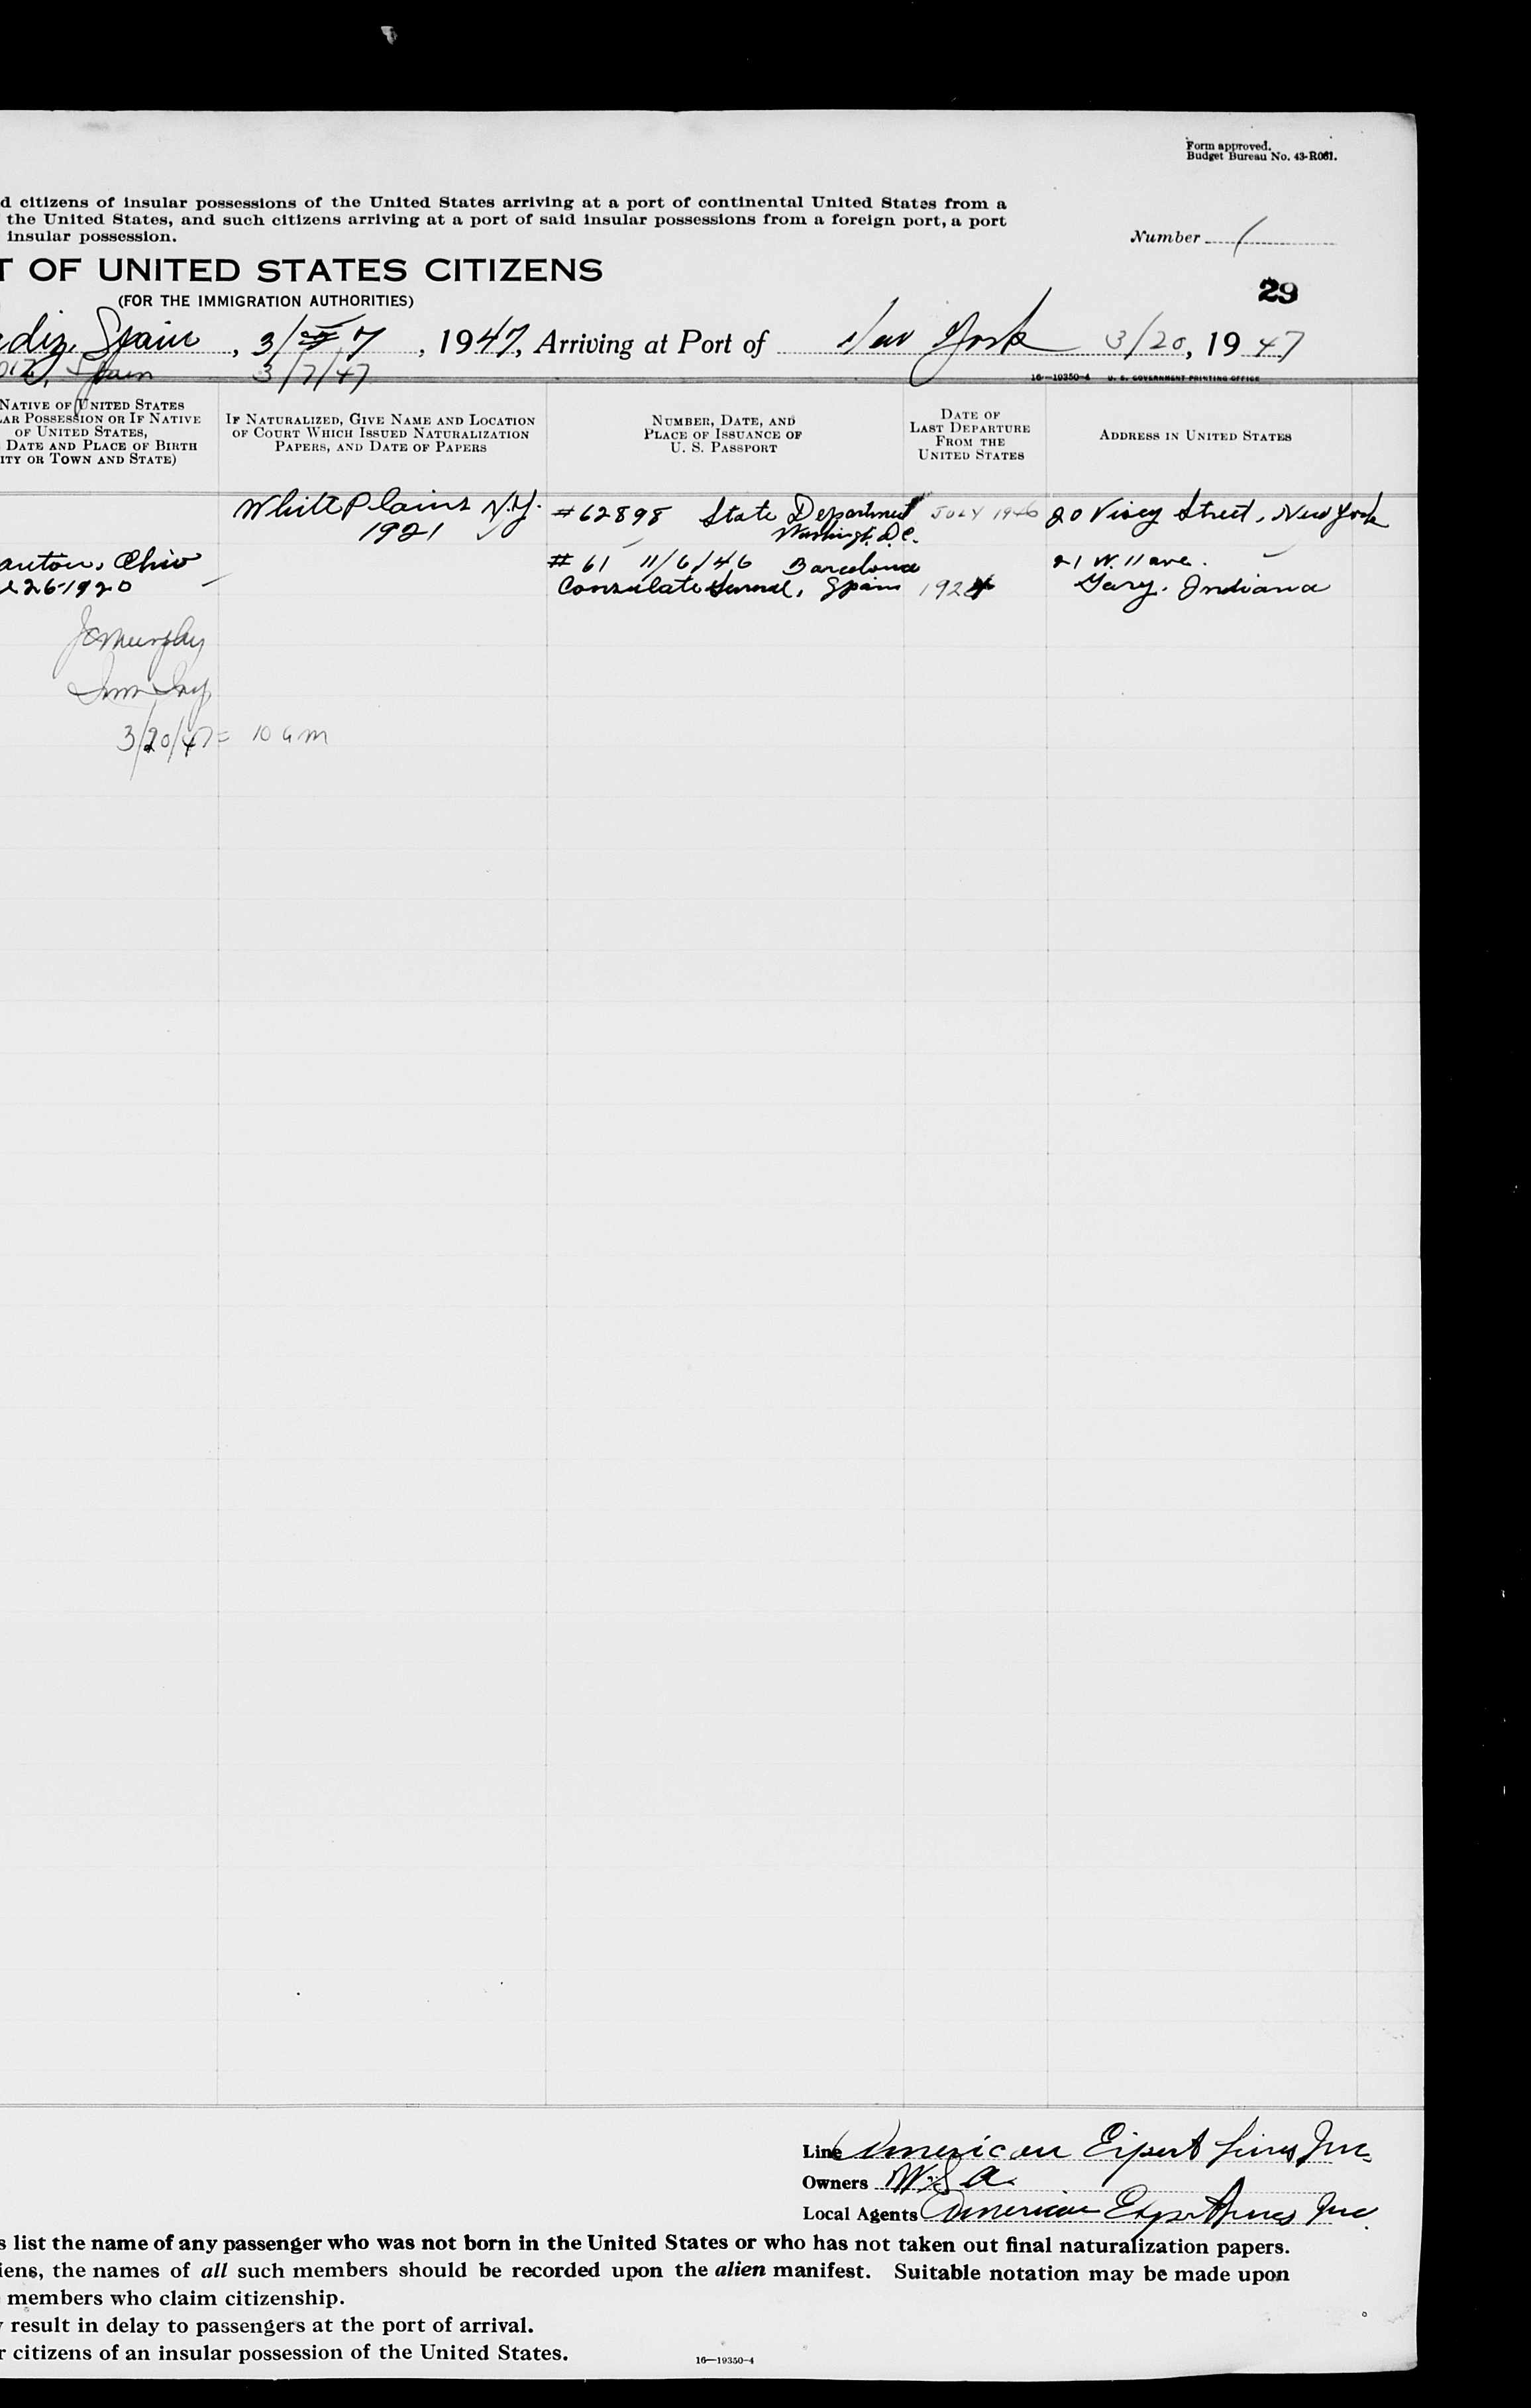 Form approved.
Budget Bureau No. 43-R061.
d citizens of insular possessions of the United States arriving at a port of continental United States from a
the United States, and such citizens arriving at a port of said insular possessions from a foreign port, a port
insular possession.
Number 1
T OF UNITED STATES CITIZENS
29
(FOR THE IMMIGRATION AUTHORITIES)
adiz, Spain, 3/7, 1947, Arriving at Port of New York 3/20, 1947
diz, Spain 3/7/47
16—19350-4 U. S. GOVERNMENT PRINTING OFFICE
NATIVE OF UNITED STATES
AR POSSESSION OR IF NATIVE
OF UNITED STATES,
DATE AND PLACE OF BIRTH
ITY OR TOWN AND STATE)
IF NATURALIZED, GIVE NAME AND LOCATION
OF COURT WHICH ISSUED NATURALIZATION
PAPERS, AND DATE OF PAPERS
NUMBER, DATE, AND
PLACE OF ISSUANCE OF
U. S. PASSPORT
DATE OF
LAST DEPARTURE
FROM THE
UNITED STATES
ADDRESS IN UNITED STATES
White Plains N.Y. #62898 State Department JULY 1946 20 Vesey Street, New York
1921 Washingt. D.C.
anton, Ohio #61 11/6/46 Barcelona 21 W. 11 ave.
26-1920 Consulate General, Spain 1924 Gary, Indiana
JC Murphy
Imm Insp
3/20/47 = 10 am
Line American Export Lines Inc.
Owners W.S.A.
Local Agents American Export Lines Inc.
s list the name of any passenger who was not born in the United States or who has not taken out final naturalization papers.
iens, the names of all such members should be recorded upon the alien manifest. Suitable notation may be made upon
members who claim citizenship.
y result in delay to passengers at the port of arrival.
r citizens of an insular possession of the United States.
16—19350-4